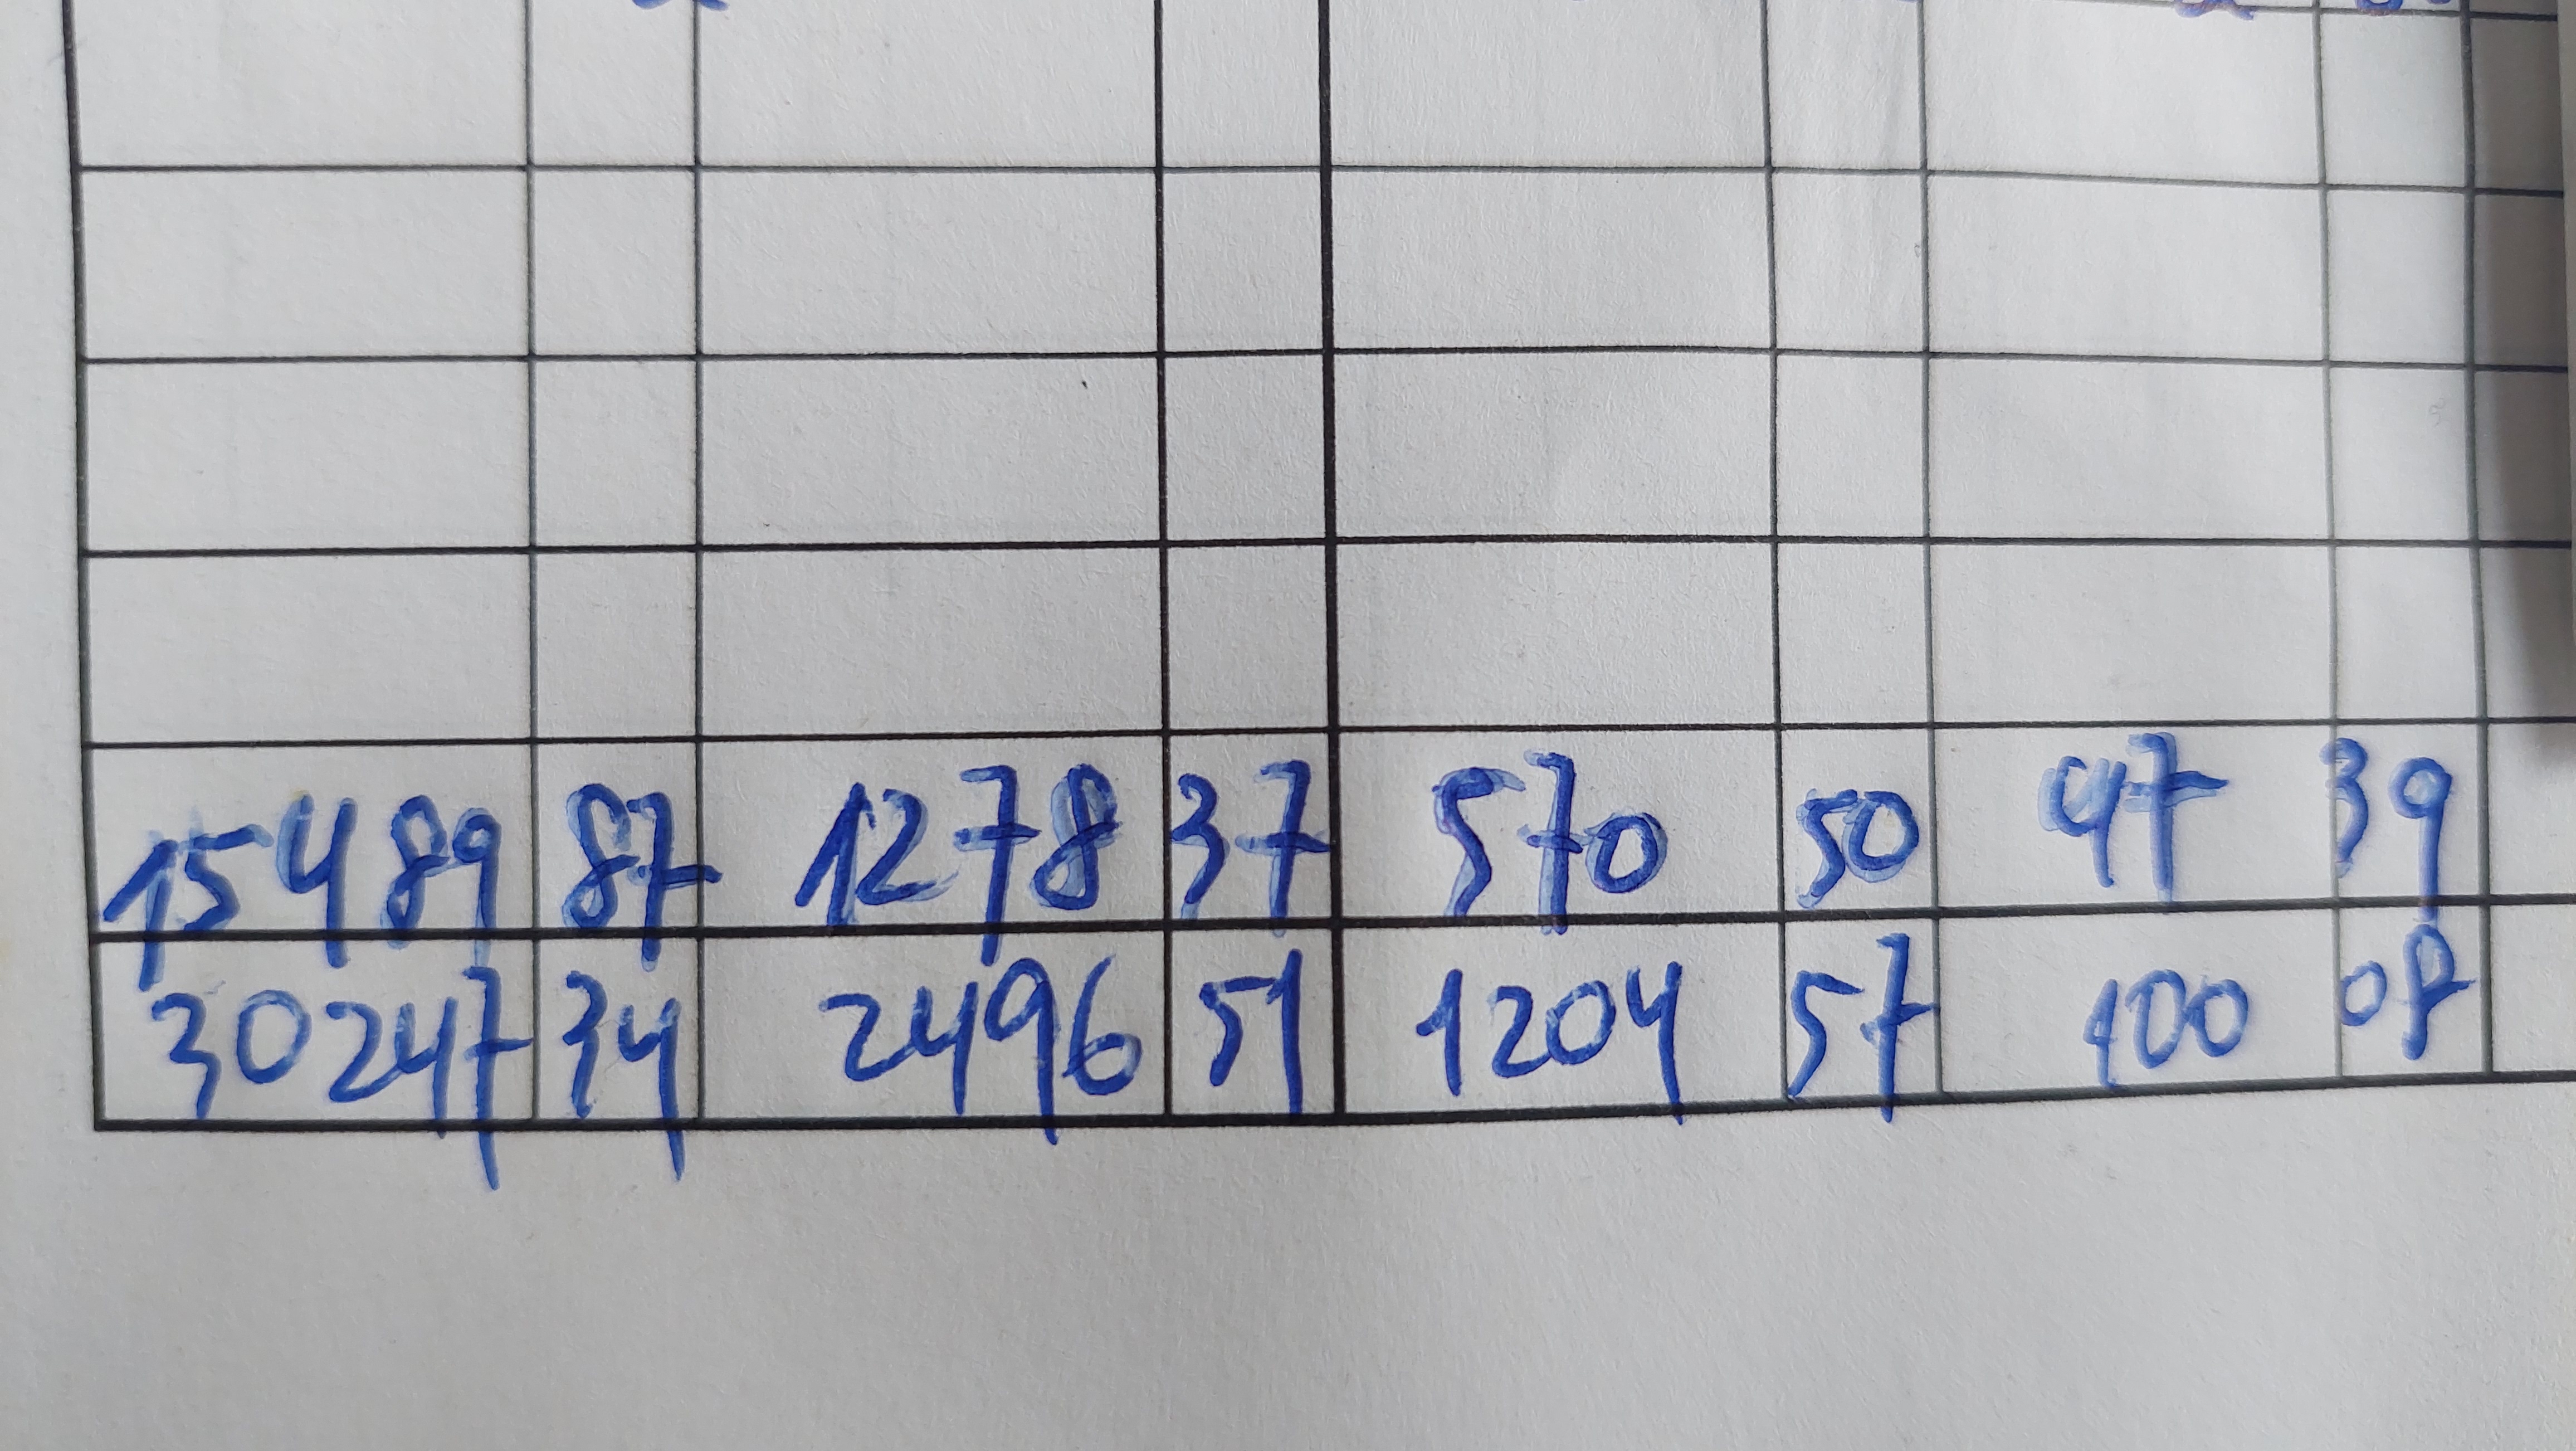 15489 87 1278 37 570 50 47 39
30247 34 2496 51 1204 57 100 08